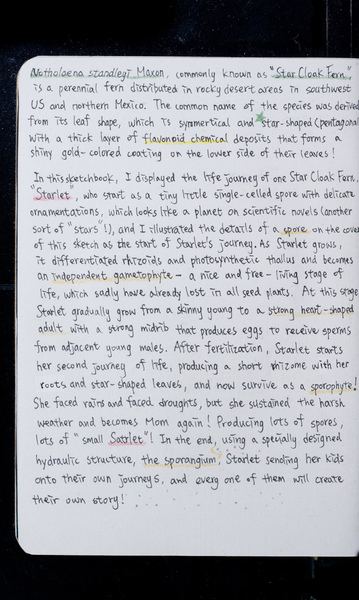 Notholaena standleyi Maxon, commonly known as "Star Cloak Fern",
is a perennial fern distributed in rocky desert areas in southwest
US and northern Mexico. The common name of the species was derived
from its leaf shape, which is symmertical and star-shaped (pentagonal)
with a thick layer of flavonoid chemical deposits that forms a
shiny gold-colored coating on the lower side of their leaves!
In this sketchbook, I displayed the life journey of one Star Cloak Fern,
"Starlet", who start as a tiny little single-celled spore with delicate
ornamentations, which looks like a planet on scientific novels (another
sort of "stars"!), and I illustrated the details of a spore on the cover
of this sketch as the start of Starlet's journey. As Starlet grows,
it differentiated rhizoids and photosynthetic thallus and becomes
an independent gametophyte - a nice and free-living stage of
life, which sadly have already lost in all seed plants. At this stage
Starlet gradually grow from a skinny young to a strong heart-shaped
adult with a strong midrib that produces eggs to receive sperms
from adjacent young males. After fertilization, Starlet starts
her second journey of life, producing a short rhizome with her
roots and star-shaped leaves, and now survive as a sporophyte!
She faced rains and faced droughts, but she sustained the harsh
weather and becomes Mom again! Producing lots of spores,
lots of "small Satrlet"! In the end, using a specially designed
hydraulic structure, the sporangium, Starlet sending her kids
onto their own journeys, and every one of them will create
their own story!